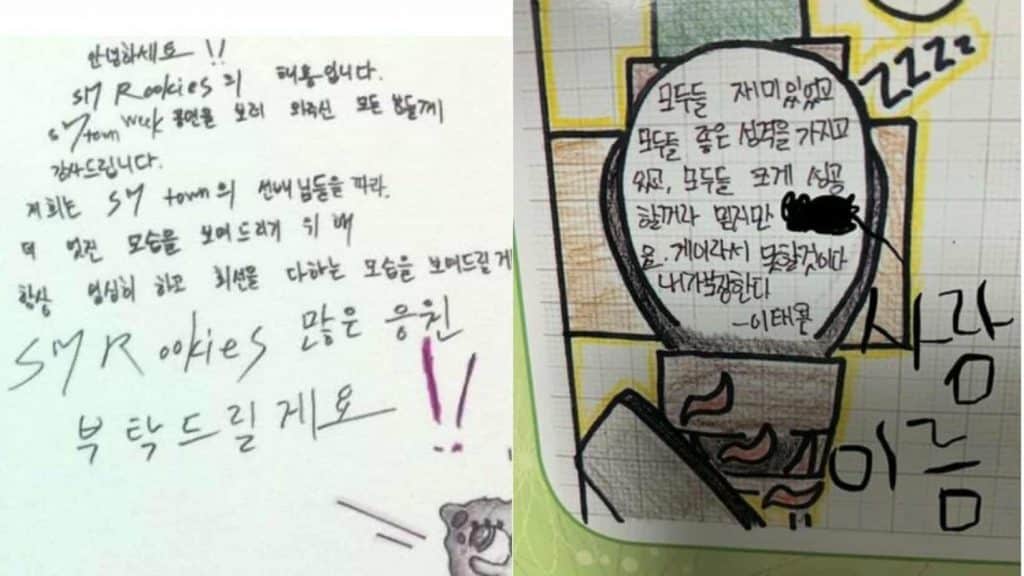 안녕하세요 !!
SM Rookies의 태용입니다.
SMtown Week 공연을 보러 와주신 모든 분들께
감사드립니다.
저희는 SM town의 선배님들을 따라.
더 멋진 모습을 보여드리기 위해
항상 열심히 하고 최선을 다하는 모습을 보여드릴게
SM Rookies 많은 응원
부탁드릴게요 !!
zzzz
모두들 재미있었고
모두들 좋은 성격을 가지고
있고, 모두들 크게 성공
할꺼라 믿지만
은. 게이라서 못할것이다
내가보장한다
-이태용
사람
이름